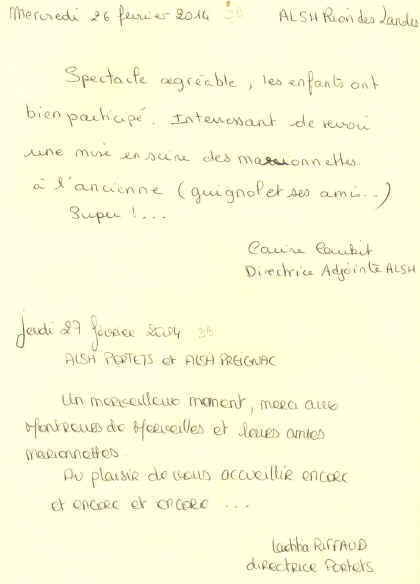 Mercredi 26 février 2014 38 ALSH Rion des Landes
Spectacle agréable, les enfants ont
bien participé. Interressant de revoir
une mise en scène des marionnettes
à l'ancienne (guignol et ses amis..)
Super !...
Directrice Adjointe ALSH
Jeudi 27 février 2014 38
ALSH PORTETS et ALSH PREIGNAC
Un merveilleux moment, merci aux
Montreurs de Merveilles et leurs amies
marionnettes.
Au plaisir de vous accueillir encore
et encore et encore ...
Laetitia RIFFAUD
directrice Portets